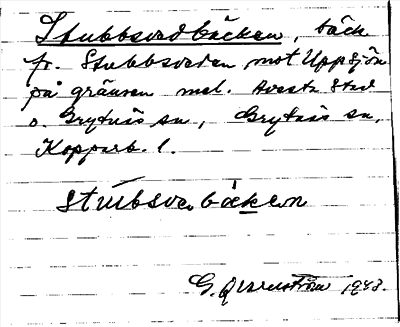 Stubbsvedbäcken, bäck
fr. Stubbsveden mot Uppsjön
på gränsen mel. Avesta stad
o. Grytnäs sn, Grytnäs sn,
Kopparb. l.
stubsvebäcken
G. 1943.